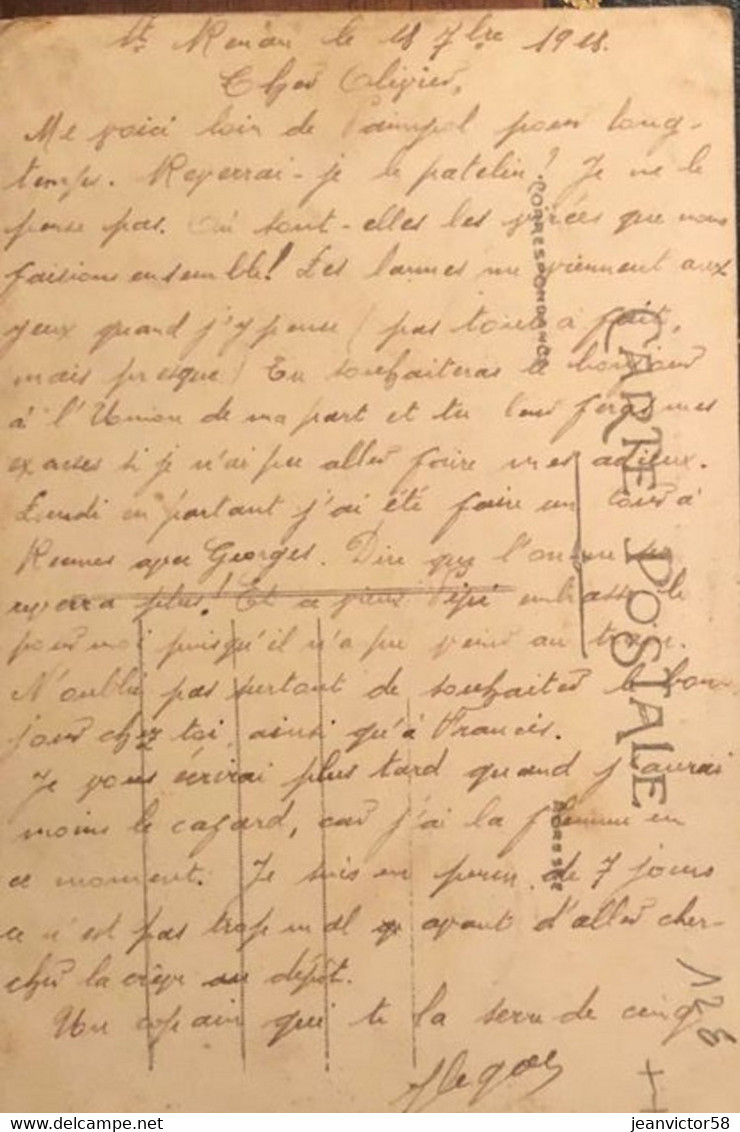 St Renan le 18 7bre 1918.
Cher Olivier,
Me voici loin de Paimpol pour long-
temps. Reverrai-je le patelin? Je ne le
pense pas. Où sont-elles les virées que nous
faisions ensemble! Les larmes me viennent aux
yeux quand j'y pense (pas tout à fait,
mais presque) Tu souhaiteras le bonjour
à l'Union de ma part et tu leur feras mes
excuses si je n'ai pu aller faire mes adieux.
Lundi en partant j'ai été faire un tour à
Rennes avec Georges. Dire que l'on ne se
reverra plus! Et ce vieux Pépé embrasse le
pour moi puisqu'il n'a pu venir au train.
N'oublie pas surtout de souhaiter le bon-
jour chez toi, ainsi qu'à Francis.
Je vous écrirai plus tard quand j'aurai
moins le cafard, car j'ai la flemme en
ce moment. Je suis en perm. de 7 jours
ce n'est pas trop mal avant d'aller cher-
cher la crève au dépôt.
Un copain qui te la serre de cinq
CARTE POSTALE
CORRESPONDANCE
ADRESSE
128
jeanvictor58